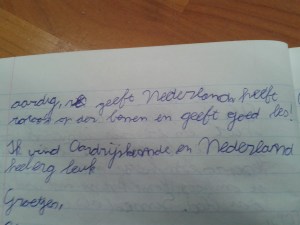 aardig, ze geeft Nederlands, heeft
er aar bonen en geeft goed les!
Ik vind Aardrijkskunde en Nederland
heel erg leuk
Groetjes,